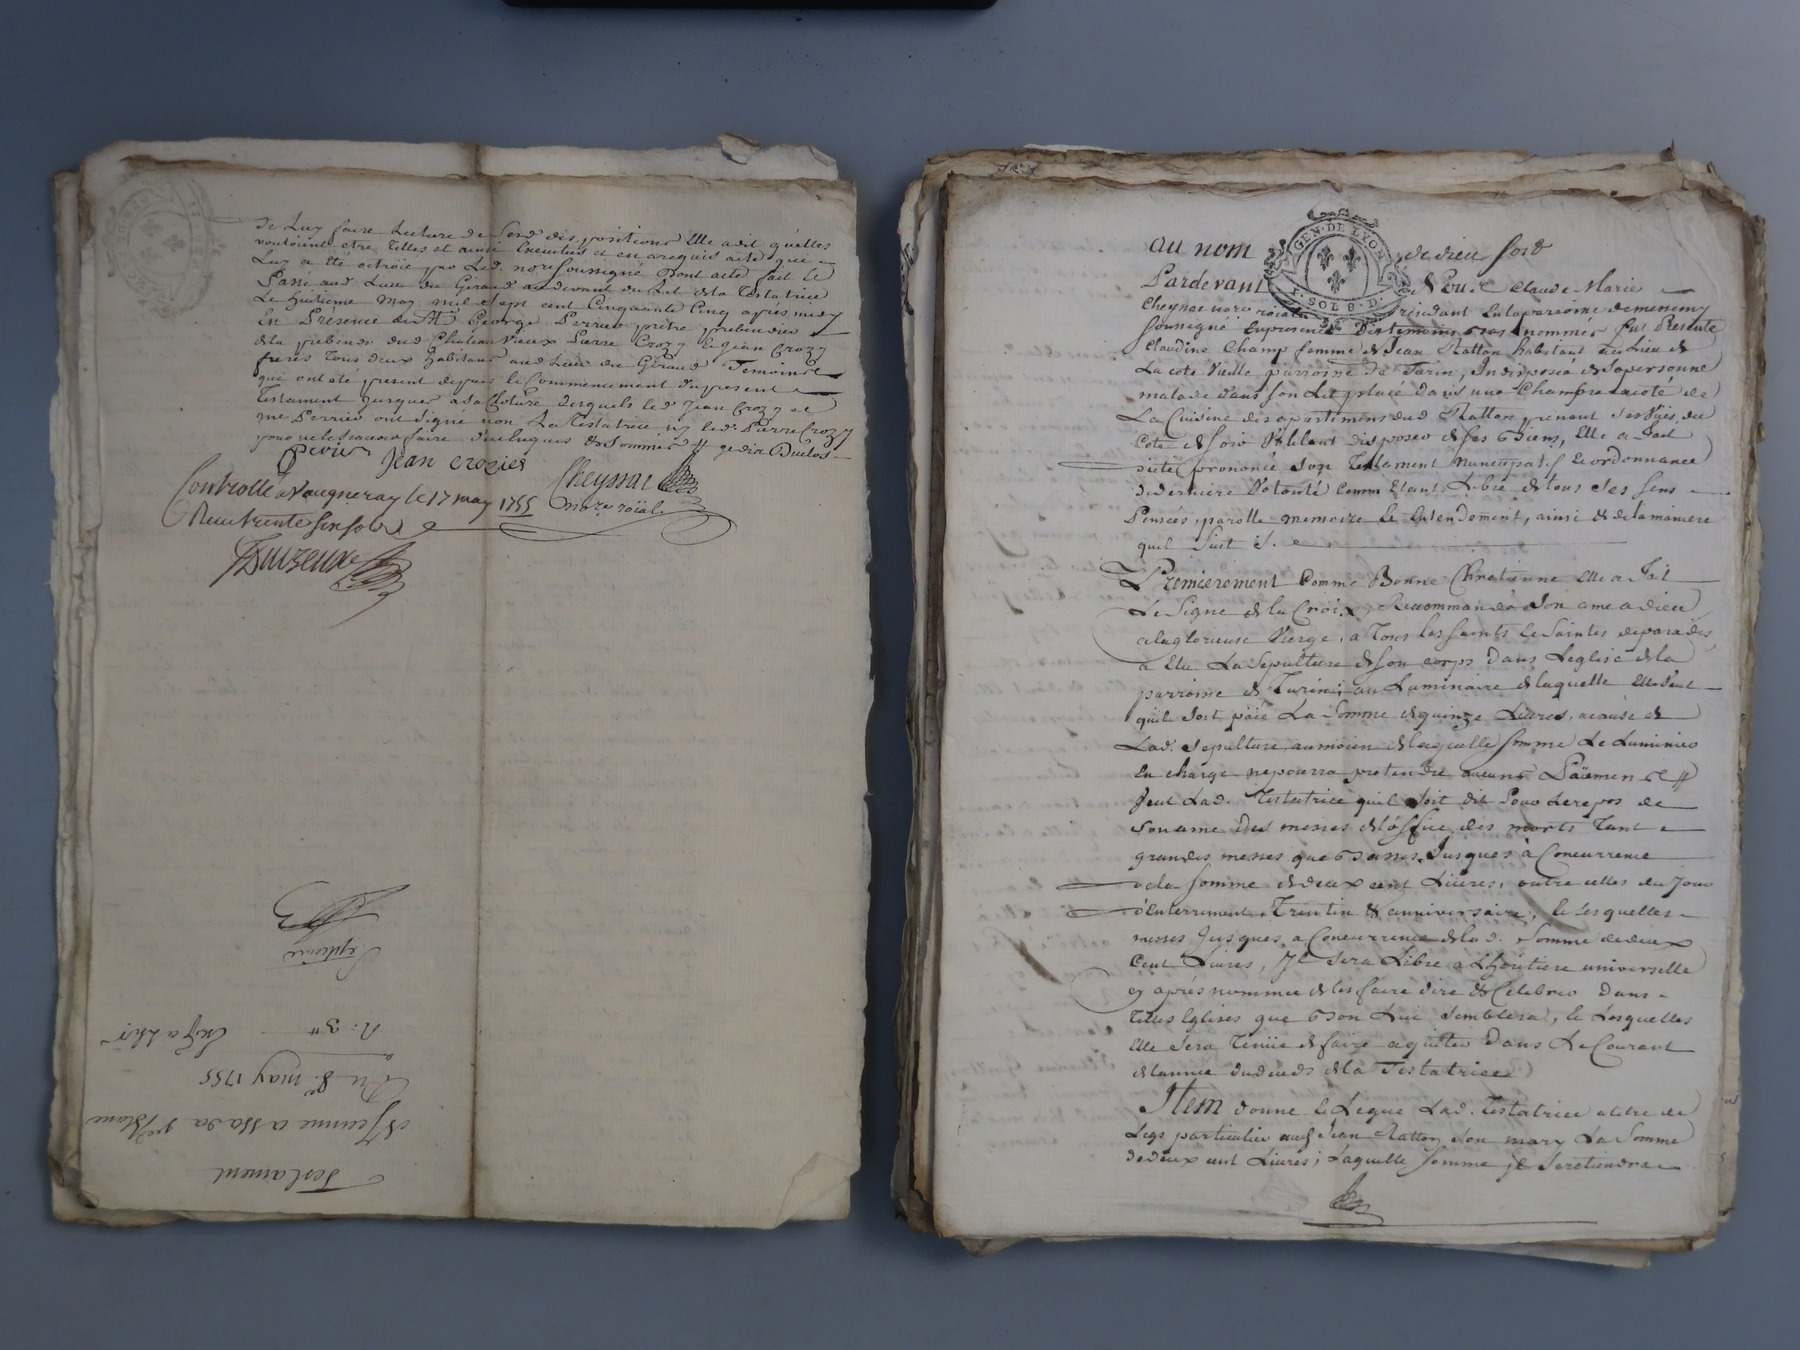 de Luy faire Lecture de sesd dispositions Elle a dit quelles
vouloient etre telles et ainsi Executées et en acquis acte qui
Luy a été octroïe par Led. no.re soussigné Dont acte fait le
Passé aud. Lieu du Giraud audevant du Lit de la Testatrice
Le huitieme may mil sept cent Cinquante Cinq apres midy
En Présence de M.re George Perrier prêtre prebendier
de la prebende dud Chateau Vieux Pierre Crozy & Jean Crozy
freres Tous deux habitans aud Lieu du Giraud Temoins
qui ont été present depuis le Commencement du present
Testament jusques a sa Cloture desquels led Jean Crozy et
me Perrier ont signé non La testatrice ny led. Pierre Crozy
pour ne le scavoir faire de ce enquis & sommés
Perier Jean crozier Cheyssac
no.re roïal
Controllé a Vaugneray le 17 may 1755
Recu trente six sols
Duizeux
Testament
Jeanne v.e Blanc
Du 8.e may 1755
R. 3#
Expedié
au nom de dieu soit
GEN. DE LYON
SOL 8. D.
Pardevant Nous Claude Marie
Cheyssac no.re roïal résidant En la parroisse de messimy
soussigné En presence Des temoins bas nommés fut Presente
Claudine Champ femme de Jean Ratton habitant au Lieu de
La cote Vieille parroisse de Turin, Indisposée de sa personne
malade dans son Lit placé dans une Chambre a coté de
La Cuisine des apartemens dud Ratton prenant ses Vües du
Coté de soir Vëlant disposer de ses Biens, Elle a fait
dicté prononcé son Testament nuncupatif & ordonnance
de derniere Volonté Comm Etant Libre de tous ses sens
Pensées, parolle memoire & Entendement, ainsi & de la maniere
quil suit
Premierement Comme Bonne Chretienne Elle a fait
Le signe de la Croix, Recommandé son ame a dieu
a la glorieuse Vierge, a Tous les saints & saintes de paradis
a Elu La sepulture de son corps Dans Leglise de la
parroisse de Turin; au Luminaire de laquelle Elle Veut
quil soit païé La somme de quinze Livres, acause de
Lad. sepulture, aumoien de laquelle somme Le Luminier
En charge ne pourra pretendre aucuns Païemens
Veut Lad. Testatrice quil soit dit Pour Le repos de
son ame Des messes de l'office des morts Tant
grandes messes que Basses Jusques à Concurrence
de la somme de deux cent Livres, outre celles du Jour
d'Enterrement Trentin & anniversaire, & Lesquelles
messes Jusques a Concurrence de lad. somme de deux
Cent Livres, Il sera Libre a Lheritiere universelle
cy apres nommée de les faire dire & Celebrer Dans
Telles Eglises que Bon Lui semblera, & Lesquelles
Elle sera Tenüe de faire aquiter Dans Le Courant
de lannée du deceds de la Testatrice
Item donne & Legue Lad. Testatrice a titre de
Legs particulier aud Jean Ratton son mary La Somme
de deux cent Livres; Laquelle somme il se retiendra